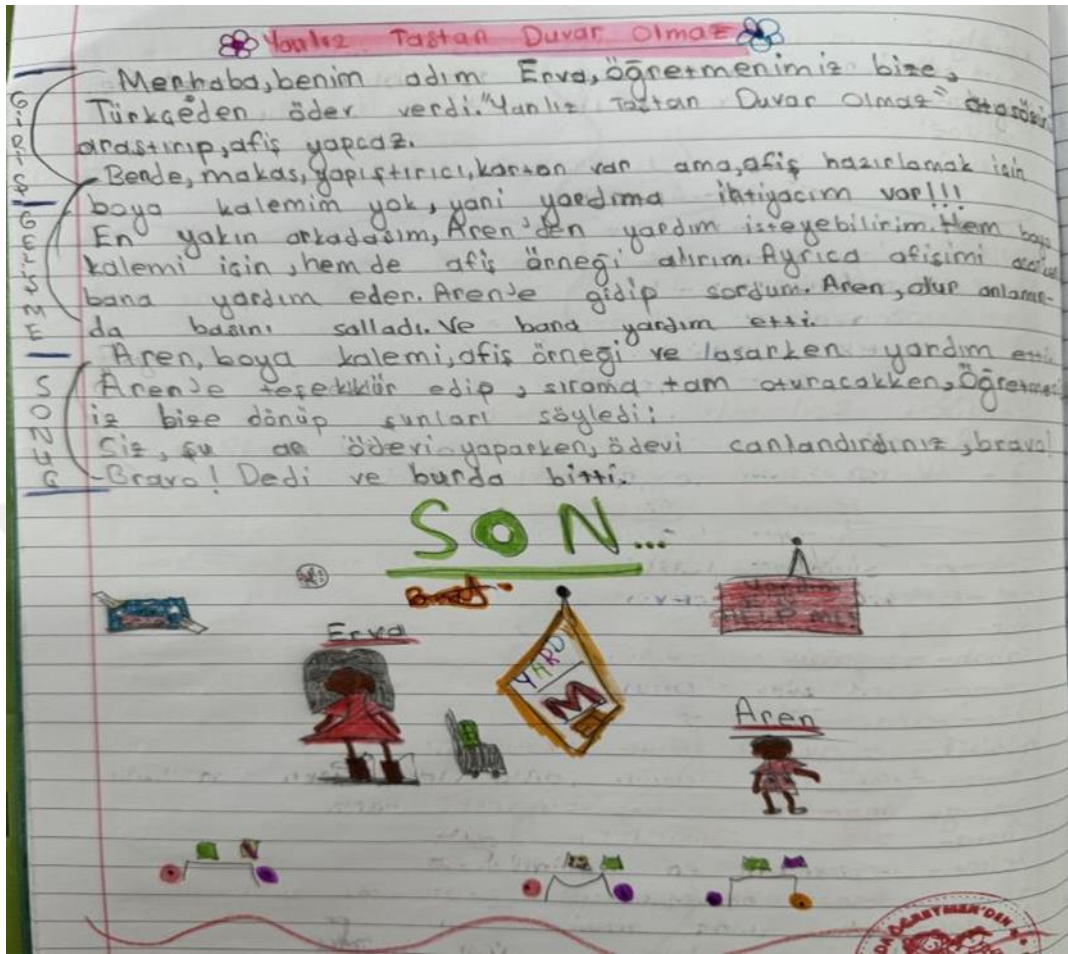 Yanlız Taştan Duvar Olmaz
Merhaba, benim adım Erva, öğretmenimiz bize,
Türkçeden öder verdi. "Yanlız Taştan Duvar Olmaz"
arastırıp, afiş yapcaz.
Bende, makas, yapıştırıcı, karton var ama, afiş hazırlamak için
boya kalemim yok, yani yardıma ihtiyacım var!!!
En yakın arkadaşım, Aren'den yardım isteyebilirim. Hem boya
kalemi için, hem de afiş örneği alırım. Ayrıca afişimi
bana yardım eder. Aren'e gidip sordum. Aren, olur anlamın-
da başını salladı. Ve bana yardım etti.
Aren, boya kalemi, afiş örneği ve yardım etti.
Aren'e teşekkür edip, sırama tam oturacakken, Öğretmen
iz bize dönüp şunları söyledi:
Siz, şu an ödevi yaparken, ödevi canlandırdınız, bravo!
-Bravo! Dedi ve burda bitti.
GİRİŞ
GELİŞME
SONUÇ
SON...
Erva
YARDIM
HELP ME!
Aren
ÖĞRETMEN'DEN